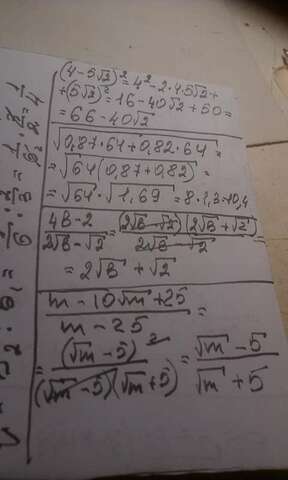 (4-5√2)² = 4² - 2·4·5√2 +
+(5√2)² = 16 - 40√2 + 50 =
= 66 - 40√2
√0,87·64 + 0,82·64 =
= √64(0,87+0,82) =
= √64 · √1,69 = 8·1,3 = 10,4
4B-2 / 2√B-√2 = (2√B-√2)(2√B+√2) / 2√B-√2 =
= 2√B + √2
m-10√m+25 / m-25 =
= (√m-5)² / (√m-5)(√m+5) = √m-5 / √m+5